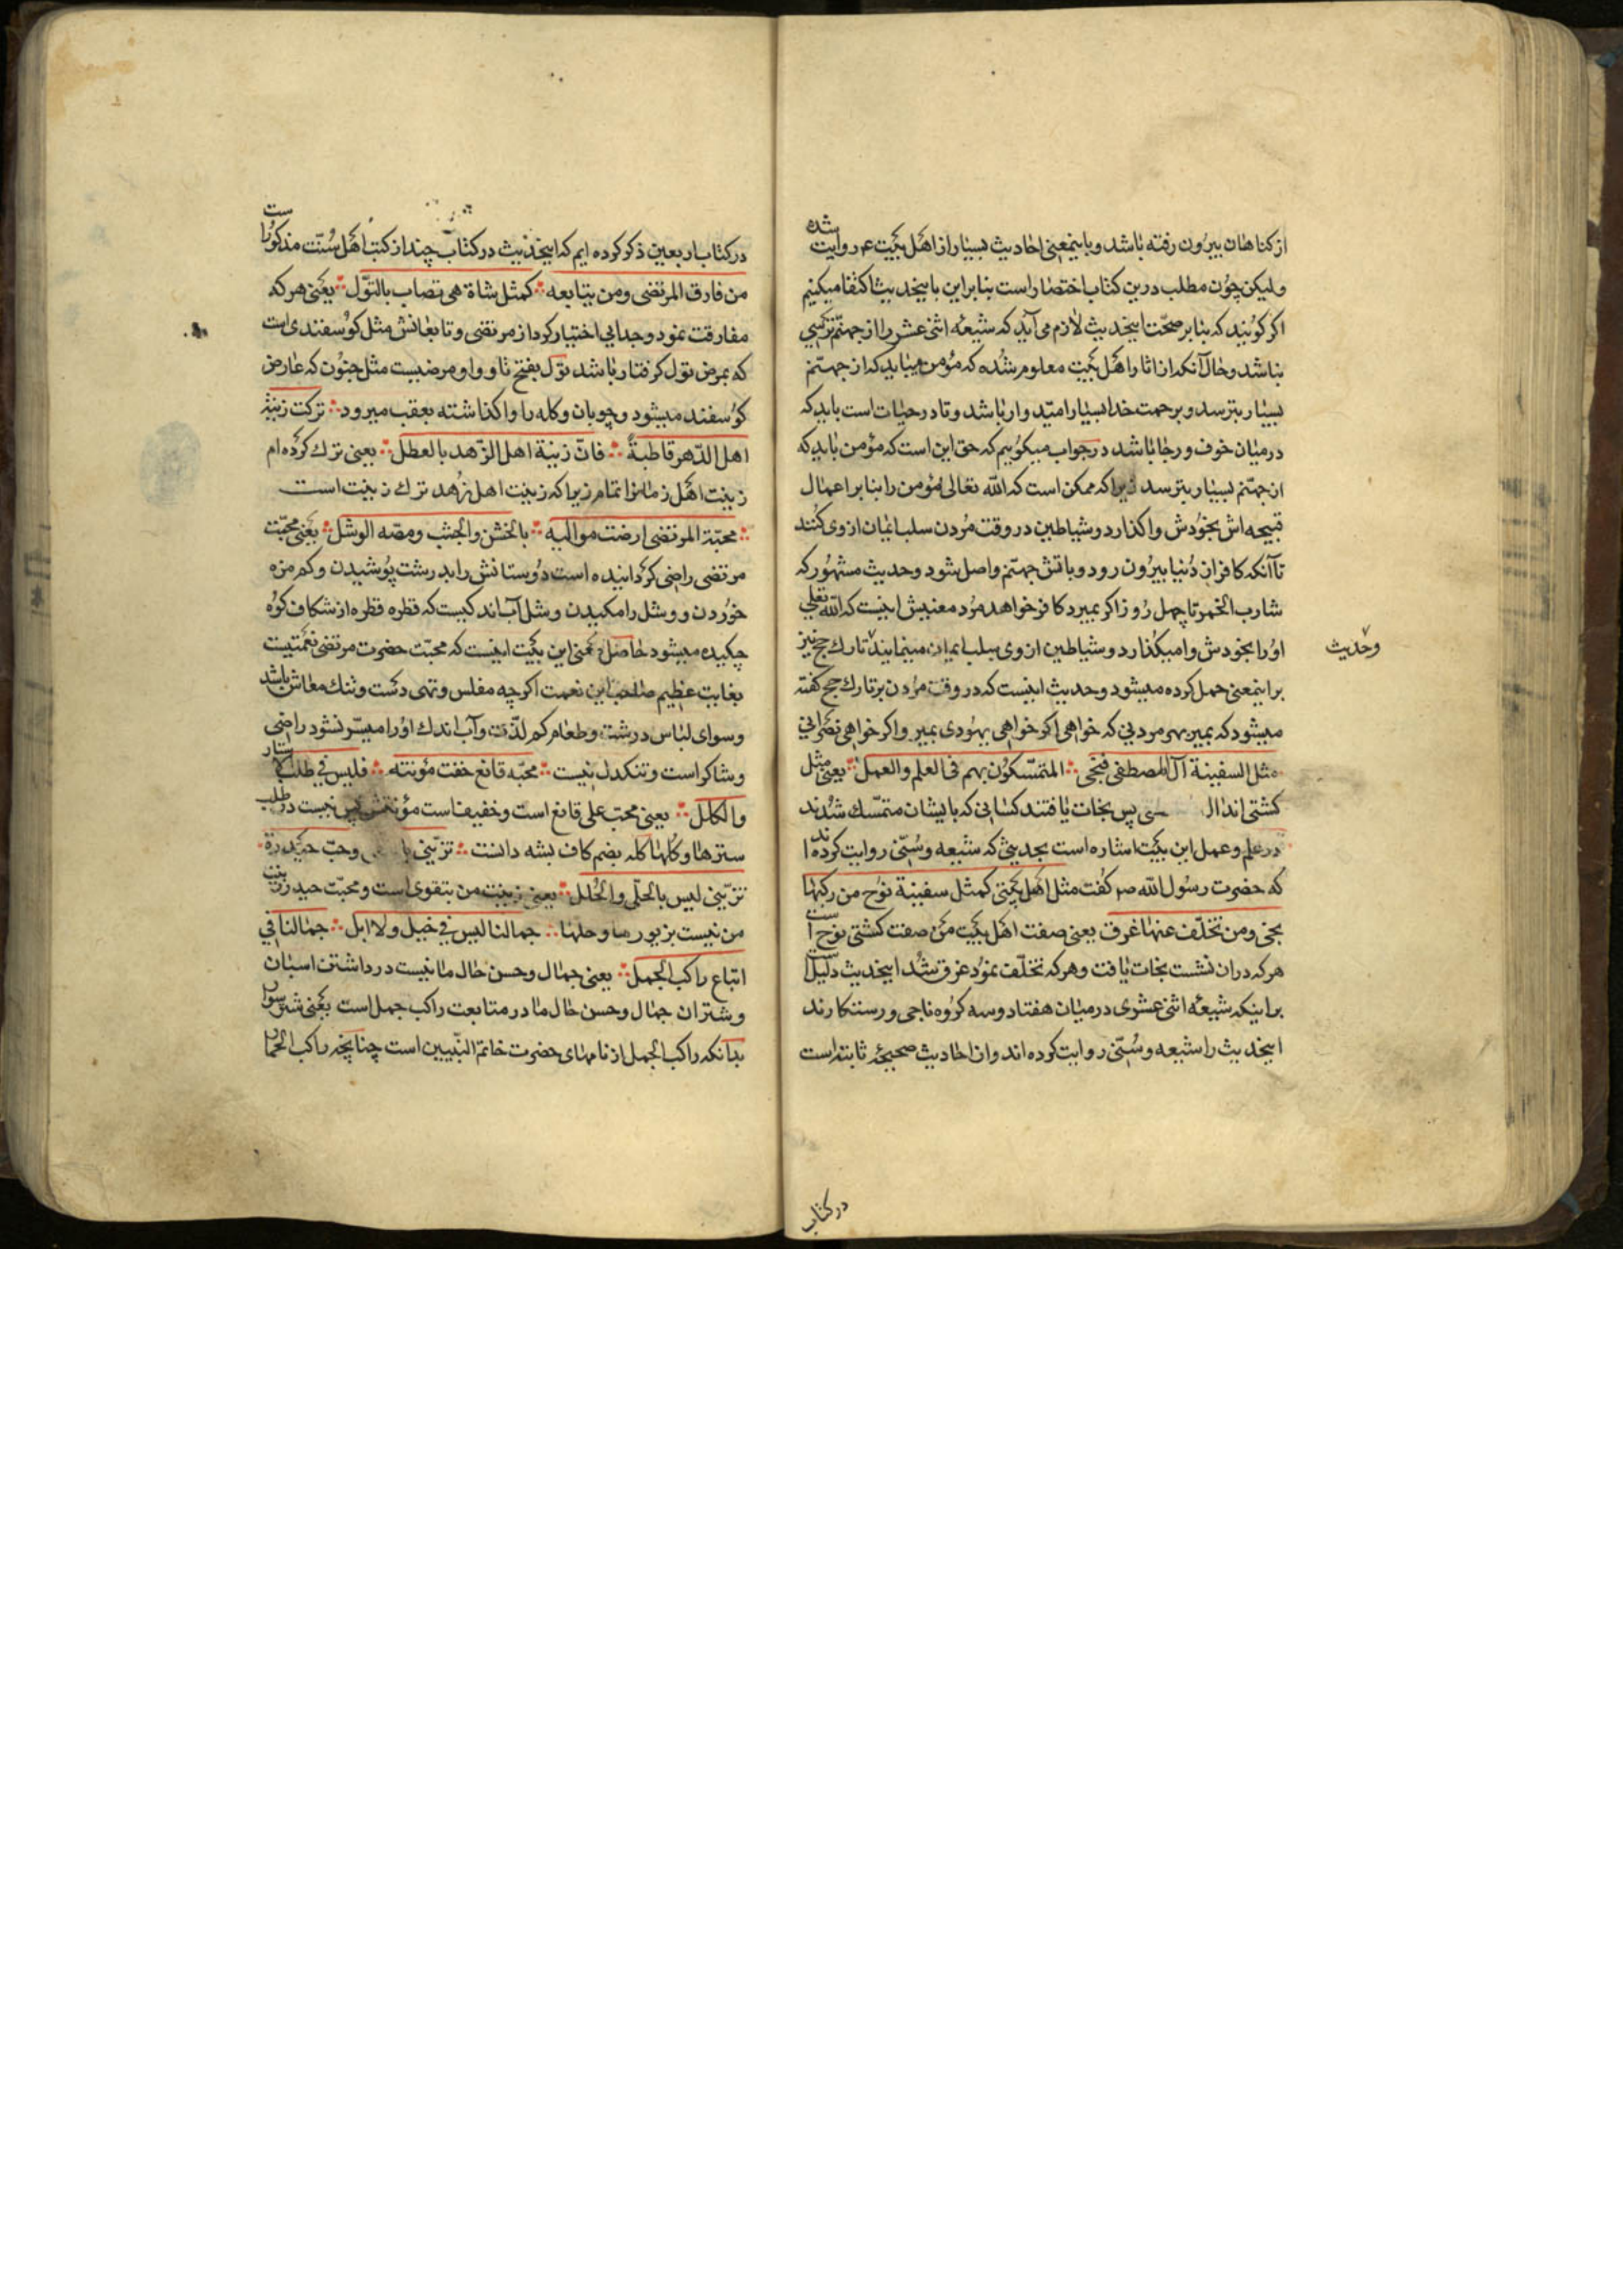 از کناهان بیرون رفته باشد و باینمعنی احادیث بسیار از اهل بیت ع روایت شده
ولیکن چون مطلب درین کتاب اختصار است بنابراین باینحدیث اکتفا میکنیم
اکر کویند که بنابر صحّت اینحدیث لازم می آید که شیعهٔ اثنی عشری را از جهنّم ترسی
نباشد و حال آنکه از اثار اهل بیت معلوم شده که مؤمن میباید که از جهنّم
بسیار بترسد و برحمت خدا بسیار امیدوار باشد و تا در حیات است باید که
درمیان خوف و رجا باشد در جواب میکوییم که حق این است که مؤمن باید که
از جهنّم بسیار بترسد زیرا که ممکن است که الله تعالی مؤمن را بنابر اعمال
قبیحه اش بخودش واکذارد و شیاطین در وقت مردن سلب ایمان از وی کنند
تا آنکه کافر از دنیا بیرون رود و باتش جهنّم واصل شود و حدیث مشهور که
شارب الخمر تا چهل روز اکر بمیرد کافر خواهد مرد معنیش اینست که الله تعالی
او را بخودش وامیکذارد و شیاطین از وی سلب ایمان مینمایند تارك حج نیز
وحدیث
براینمعنی حمل کرده میشود و حدیث اینست که در وقت مردن بر تارك حج کفته
میشود که بمیر بهر مردنی که خواهی اکر خواهی یهودی بمیر و اکر خواهی نصرانی
مثل السفینة آل المصطفی فنجی ∴ المتمسّکون بهم فی العلم والعمل ∴ یعنی مثل
کشتی اند ال پس نجات یافتند کسانی که بایشان متمسّك شدند
در علم و عمل این بیت اشاره است بحدیثی که شیعه و سُنّی روایت کرده اند
که حضرت رسول الله ص کفت مثل اهل بیتی کمثل سفینة نوح من رکبها
نجی ومن تخلّف عنها غرق یعنی صفت اهل بیت من صفت کشتی نوح است
هر که دران نشست نجات یافت و هر که تخلّف نمود غرق شد اینحدیث دلیل است
براینکه شیعهٔ اثنی عشری درمیان هفتاد و سه کروه ناجی و رستکارند
اینحدیث را شیعه و سُنّی روایت کرده اند و از احادیث صحیحهٔ ثابته است
در کتاب
در کتاب اربعین ذکر کرده ایم که اینحدیث در کتاب چند از کتب اهل سُنّت مذکور است
من فارق المرتضی ومن یتابعه ∴ کمثل شاة هی تصاب بالثوّل ∴ یعنی هر که
مفارقت نمود و جدایی اختیار کرد از مرتضی و تابعانش مثل کوسفندی است
که بمرض ثول کرفتار باشد ثول بفتح ثا و واو مرضیست مثل جنون که عارض
کوسفند میشود و چوبان و کله را واکذاشته بعقب میرود ∴ ترکت زینة
اهل الدّهر قاطبةً ∴ فانّ زینة اهل الزّهد بالعطل ∴ یعنی ترك کرده ام
زینت اهل زمانرا تمام زیرا که زینت اهل زهد ترك زینت است
∴ محبّة المرتضی ارضت موالیه ∴ بالخشن والجشب ومصّه الوشل ∴ یعنی محبّت
مرتضی راضی کردانیده است دوستانش را بدرشت پوشیدن و کم مزه
خوردن و وشل را مکیدن وشل آب اندکیست که قطره قطره از شکاف کوه
چکیده میشود حاصل معنی این بیت اینست که محبّت حضرت مرتضی نعمتیست
بغایت عظیم صاحب این نعمت اکرچه مفلس و تهی دست و تنك معاش باشد
وسوای لباس درشت و طعام کم لذّت و آب اندك او را میسّر نشود راضی
وشاکر است و تنکدل نیست ∴ محبّه قانع خفت مؤنته ∴ فلیس فی طلب الاستار
والکلل ∴ یعنی محب علی قانع است و خفیف است مؤنتش پس نیست در طلب
سترها و کلها کله بضم کاف بشه دانست ∴ تزیّنی وحبّ حیدرة
تزیّنی لیس بالحلّی والحُلل ∴ یعنی زینت من بتقوی است و محبّت حیدر زینت
من نیست بزیورها و حلها ∴ جمالنا لیس فی خیل ولا ابل ∴ جمالنا فی
اتباع راکب الجمل ∴ یعنی جمال و حسن حال ما نیست در داشتن اسبان
وشتران جمال و حسن حال ما در متابعت راکب جمل است یعنی شترسوار
بدانکه راکب الجمل از نامهای حضرت خاتم النّبیین است چنانچه راکب الحمار